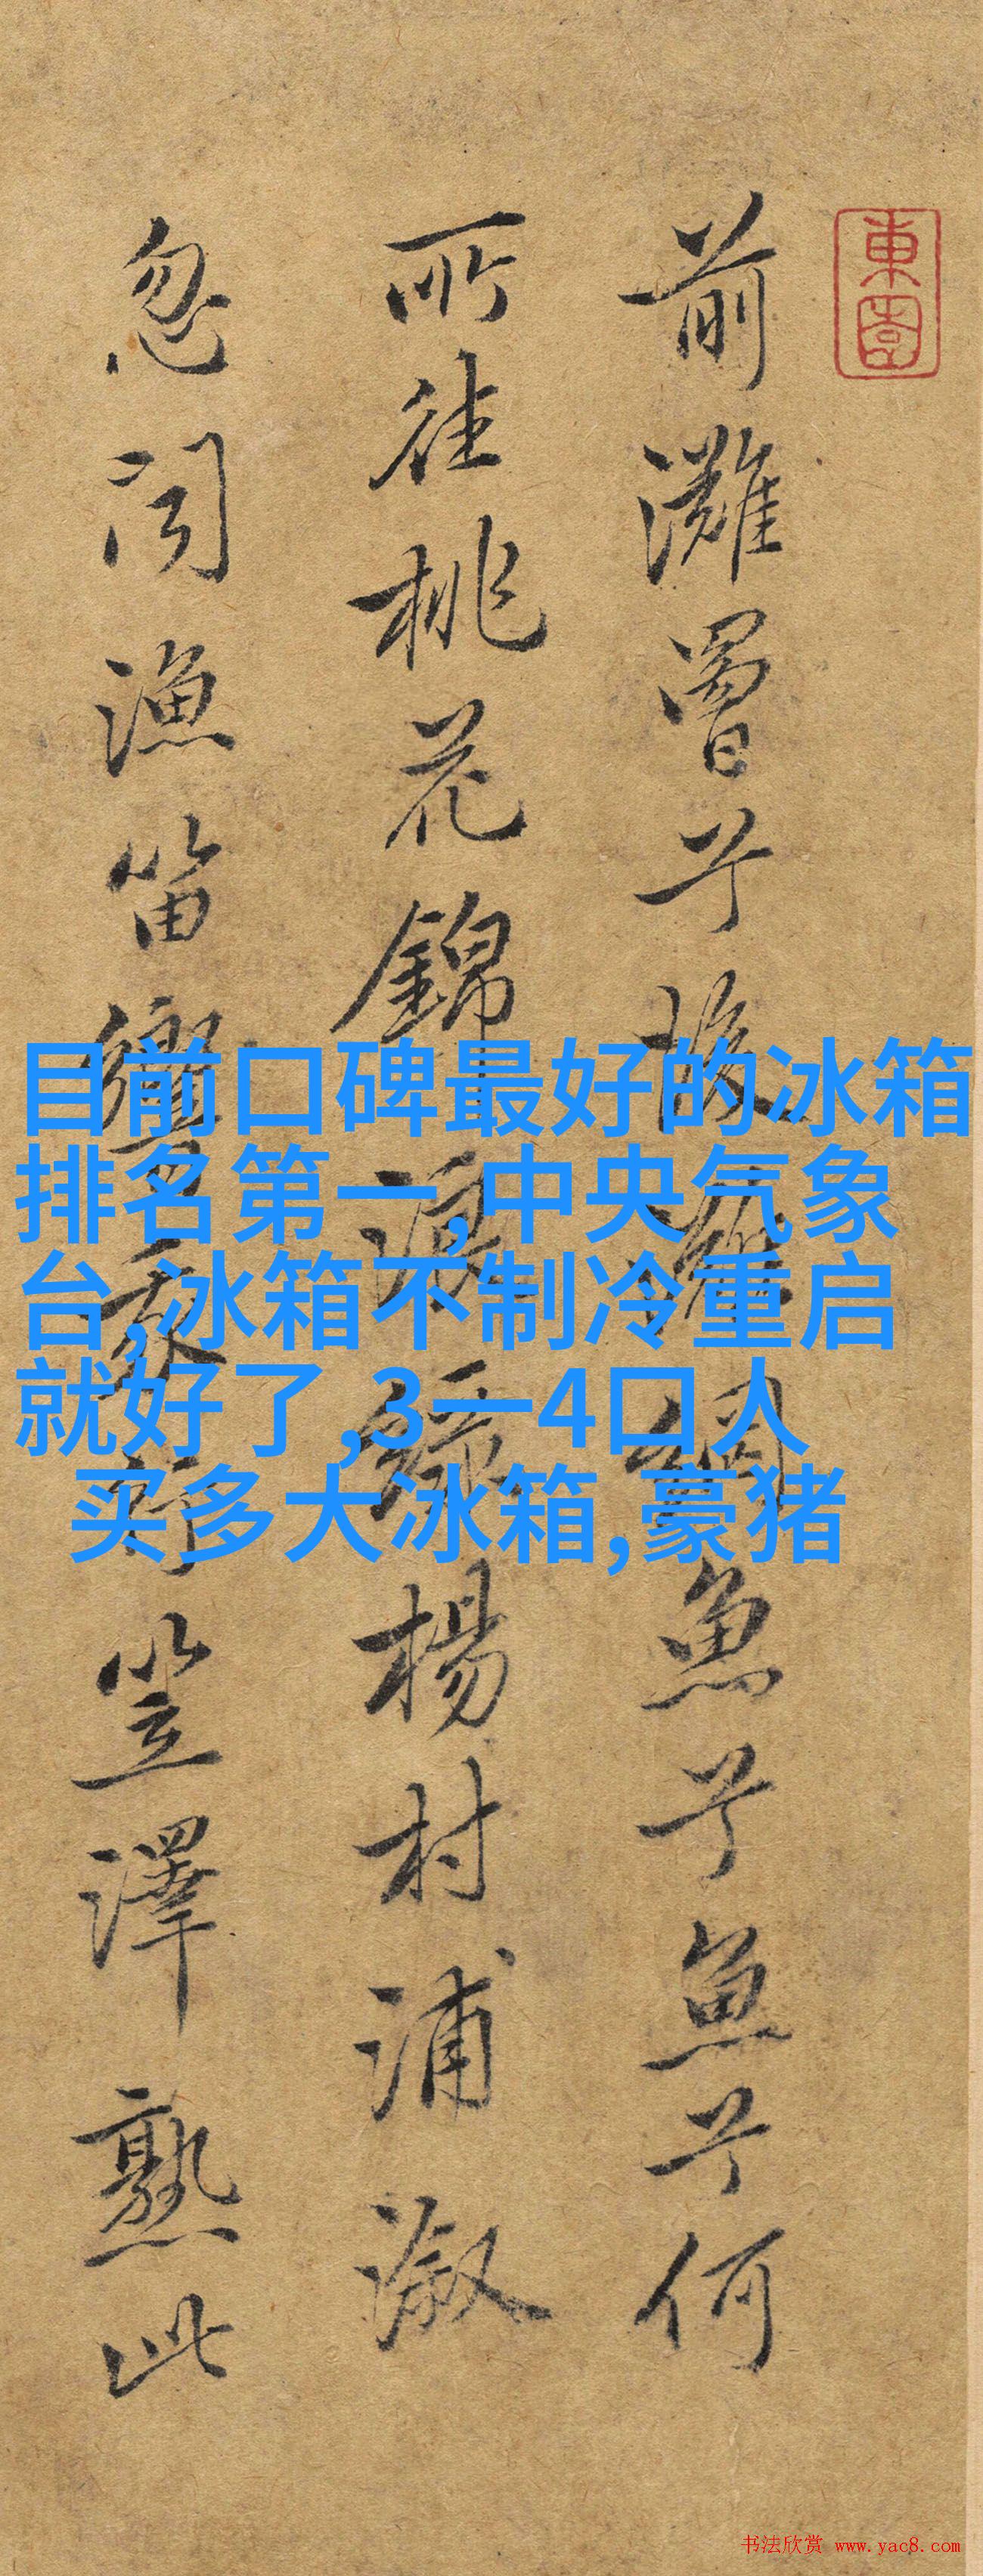 東園
前灘罾兮後灘網魚兮魚兮何
所往桃花錦浪綠楊村浦漵
忽聞漁笛響笠澤熟此
目前口碑最好的冰箱
排名第一,中央气象
台,冰箱不制冷重启
就好了,3一4口人
买多大冰箱,豪猪
书法欣赏 www.yac8.com